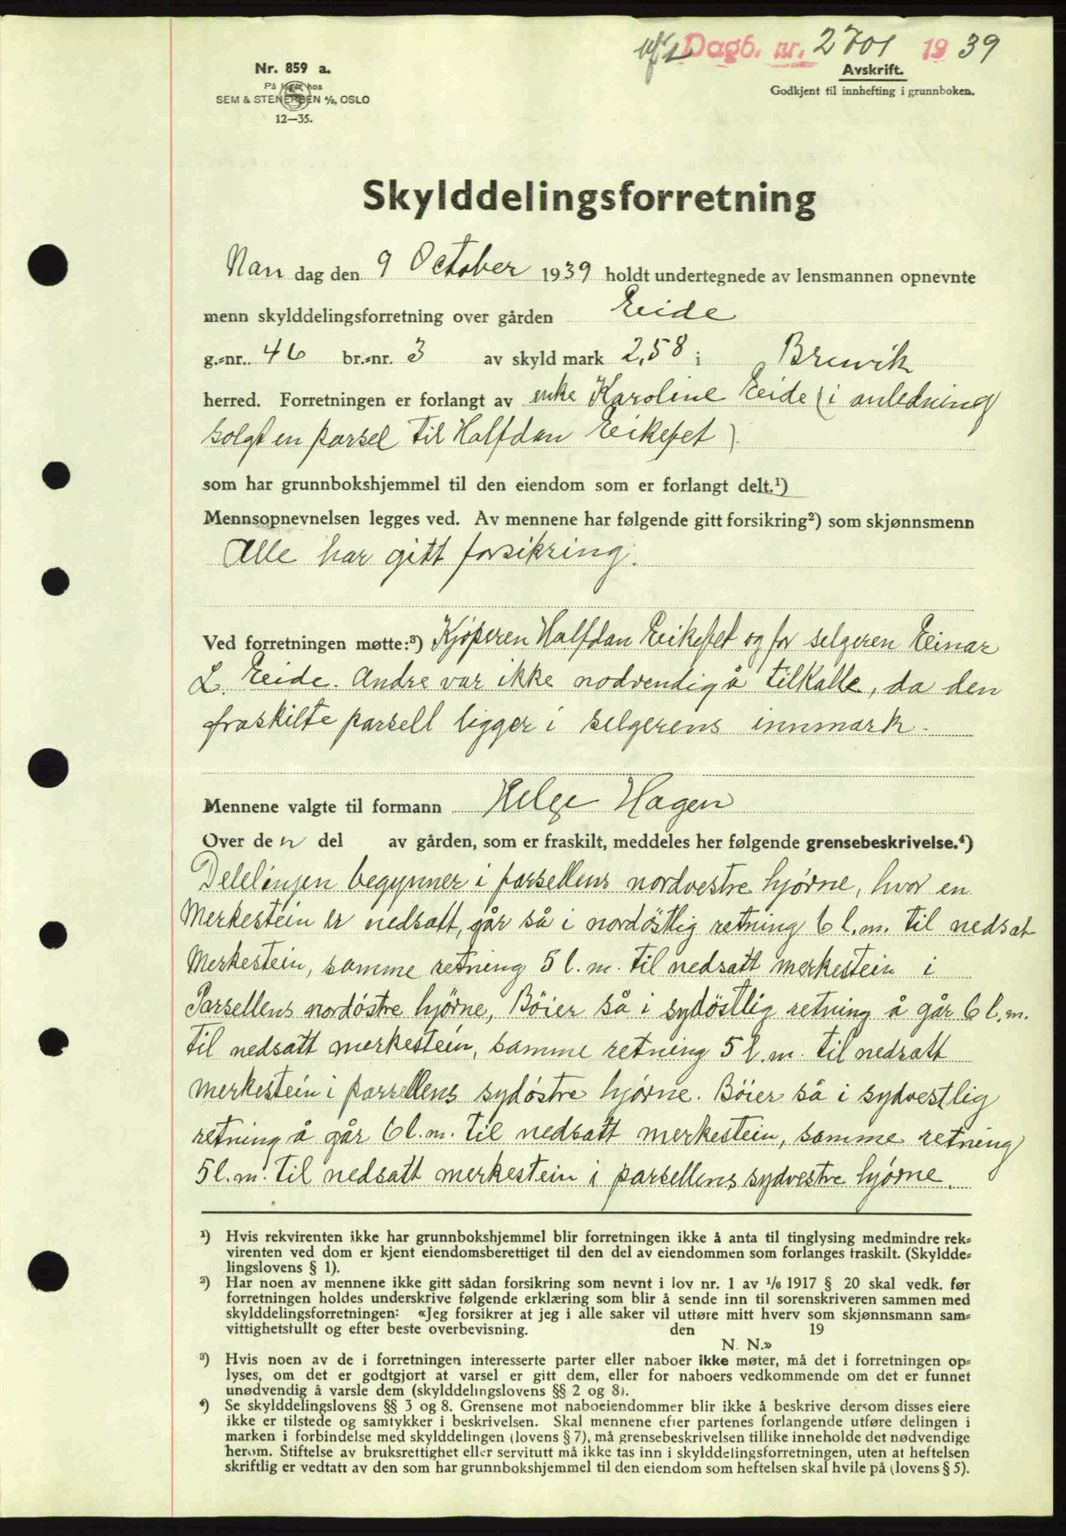 11/12 Dagb. nr. 2701 1939
Avskrift.
Godkjent til innhefting i grunnboken.
Nr. 859 a.
På lager hos
SEM & STENERSEN A/S, OSLO
12—35.
Skylddelingsforretning
Man dag den 9 October 1939 holdt undertegnede av lensmannen opnevnte
menn skylddelingsforretning over gården Eide
g.-nr. 46 br.-nr. 3 av skyld mark 2,58 i Bruvik
herred. Forretningen er forlangt av enke Karoline Eide (i anledning
solgt en parsel til Halfdan Eikefet)
som har grunnbokshjemmel til den eiendom som er forlangt delt.¹)
Mennsopnevnelsen legges ved. Av mennene har følgende gitt forsikring²) som skjønnsmenn
Alle har gitt forsikring.
Ved forretningen møtte:³) Kjøperen Halfdan Eikefet og for selgeren Einar
L. Eide. Andre var ikke nødvendig å tilkalle, da den
fraskilte parsell ligger i selgerens innmark.
Mennene valgte til formann Helge Hagen
Over den del av gården, som er fraskilt, meddeles her følgende grensebeskrivelse.⁴)
Delelinjen begynner i parsellens nordvestre hjørne, hvor en
Merkestein er nedsatt, går så i nordöstlig retning 6 l.m. til nedsat
Merkestein, samme retning 5 l.m. til nedsatt merkestein i
Parsellens nordöstre hjørne, Böier så i sydöstlig retning å går 6 l.m.
til nedsatt merkestein, samme retning 5 l.m. til nedsatt
merkestein i parsellens sydöstre hjørne. Böier så i sydvestlig
retning å går 6 l.m. til nedsatt merkestein, samme retning
5 l.m. til nedsatt merkestein i parsellens sydvestre hjørne.
¹) Hvis rekvirenten ikke har grunnbokshjemmel blir forretningen ikke å anta til tinglysing medmindre rek-
virenten ved dom er kjent eiendomsberettiget til den del av eiendommen som forlanges fraskilt. (Skyldde-
lingslovens § 1).
²) Har noen av mennene ikke gitt sådan forsikring som nevnt i lov nr. 1 av 1/6 1917 § 20 skal vedk. før
forretningen holdes underskrive følgende erklæring som blir å sende inn til sorenskriveren sammen med
skylddelingsforretningen: «Jeg forsikrer at jeg i alle saker vil utføre mitt hverv som skjønnsmann sam-
vittighetsfullt og efter beste overbevisning. den 19
N. N.»
³) Hvis noen av de i forretningen interesserte parter eller naboer ikke møter, må det i forretningen op-
lyses, om det er godtgjort at varsel er gitt dem, eller for naboers vedkommende om det er funnet
unødvendig å varsle dem (skylddelingslovens §§ 2 og 8).
⁴) Se skylddelingslovens §§ 3 og 8. Grensene mot naboeiendommer blir ikke å beskrive dersom disses eiere
ikke er tilstede og samtykker i beskrivelsen. Skal mennene efter partenes forlangende utføre delingen i
marken i forbindelse med skylddelingen (lovens § 7), må grensebeskrivelsen tillike inneholde det nødvendige
herom. Stiftelse av bruksrettighet eller servitutt må ikke tas inn i skylddelingsforretningen, uten at heftelsen
skriftlig er vedtatt av den som har grunnbokshjemmel til den eiendom som heftelsen skal hvile på (lovens § 5).